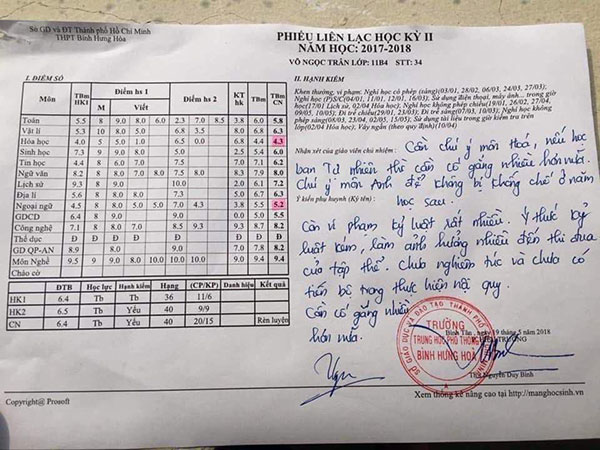 Sở GD và ĐT Thành phố Hồ Chí Minh
THPT Bình Hưng Hòa
PHIẾU LIÊN LẠC HỌC KỲ II
NĂM HỌC: 2017-2018
VÕ NGỌC TRÂN LỚP: 11B4 STT: 34
I. ĐIỂM SỐ
Môn TBm HK1 Điểm hs 1 M Viết Điểm hs 2 KT hk TBm hk TBm CN
Toán 5.5 8 9.0 8.0 6.0 2.3 7.0 8.5 3.8 6.0 5.8
Vật lí 5.3 10 8.0 5.0 6.8 3.5 8.0 6.8 6.3
Hóa học 4.0 5 5.0 1.0 5.0 6.0 6.8 4.4 4.3
Sinh học 7.3 9.0 8.0 5.3 5.4 6.0
Tin học 4.4 8 6.0 7.5 7.0 7.1 6.2
Ngữ văn 8.2 8.0 7.0 8.0 7.5 8.3 7.0 8.0
Lịch sử 9.3 9.0 10.0 2.0 6.1 7.2
Địa lí 5.6 8.0 9.0 7.3 5.0 6.7 6.3
Ngoại ngữ 4.5 8.0 5.0 7.5 7.0 4.3 3.8 5.5 5.2
GDCD 6.4 9.0 0.0 5.5 5.0 5.5
Công nghệ 7.1 8 8.0 7.0 8.5 9.3 8.7 8.2
Thể dục Đ Đ Đ Đ Đ Đ Đ
GD QP-AN 8.9 8.0 9.0 7.0 7.8 8.2
Môn Nghề 9.5 9 9.0 8.0 10.0 10.0 10.0 9.0 9.4 9.4
Chào cờ
ĐTB Học lực Hạnh kiểm Hạng (CP/KP) Danh hiệu Kết quả
HK1 6.4 Tb Tb 36 11/6
HK2 6.5 Tb Yếu 40 9/9
CN 6.4 Tb Yếu 40 20/15 Rèn luyện
II. HẠNH KIỂM
Khen thưởng, vi phạm: Nghỉ học có phép (sáng)(03/01, 28/02, 06/03, 24/03, 27/03)
Nghỉ học (P)S/C(04/01, 11/01, 12/01, 16/03); Sử dụng điện thoại, máy ảnh... trong giờ
học(17/01 Lịch sử, 02/04 Hóa học); Nghỉ học không phép chiều(19/01, 26/02, 27/04,
09/05, 10/05); Đi trễ(29/01, 23/01); Nghỉ học có phép chiều(05/03); Nghỉ học không
phép (sáng)(08/03, 02/05); Sử dụng tài liệu trong giờ kiểm tra trên
lớp(02/04 Hóa học); Váy ngắn (theo quy định)(10/04)
Nhận xét của giáo viên chủ nhiệm: Cần chú ý môn Hoá, nếu học
ban Tự nhiên thì cần cố gắng nhiều hơn nữa.
Chú ý môn Anh để không bị khống chế ở năm
học sau.
Ý kiến phụ huynh (Ký tên):
Còn vi phạm kỷ luật rất nhiều. Ý thức kỷ
luật kém, làm ảnh hưởng nhiều đến thi đua
của tập thể. Chưa nghiêm túc và chưa có
tiến bộ trong thực hiện nội quy.
Cần cố gắng nhiều
hơn nữa.
Bình Tân, ngày 19 tháng 5 năm 2018
HIỆU TRƯỞNG
SỞ GIÁO DỤC VÀ ĐÀO TẠO THÀNH PHỐ
TRƯỜNG
TRUNG HỌC PHỔ THÔNG
BÌNH HƯNG HÒA
ThS Nguyễn Duy Bình
Copyright@ Prosoft
Xem thông kê nâng cao tại http://manghocsinh.vn.